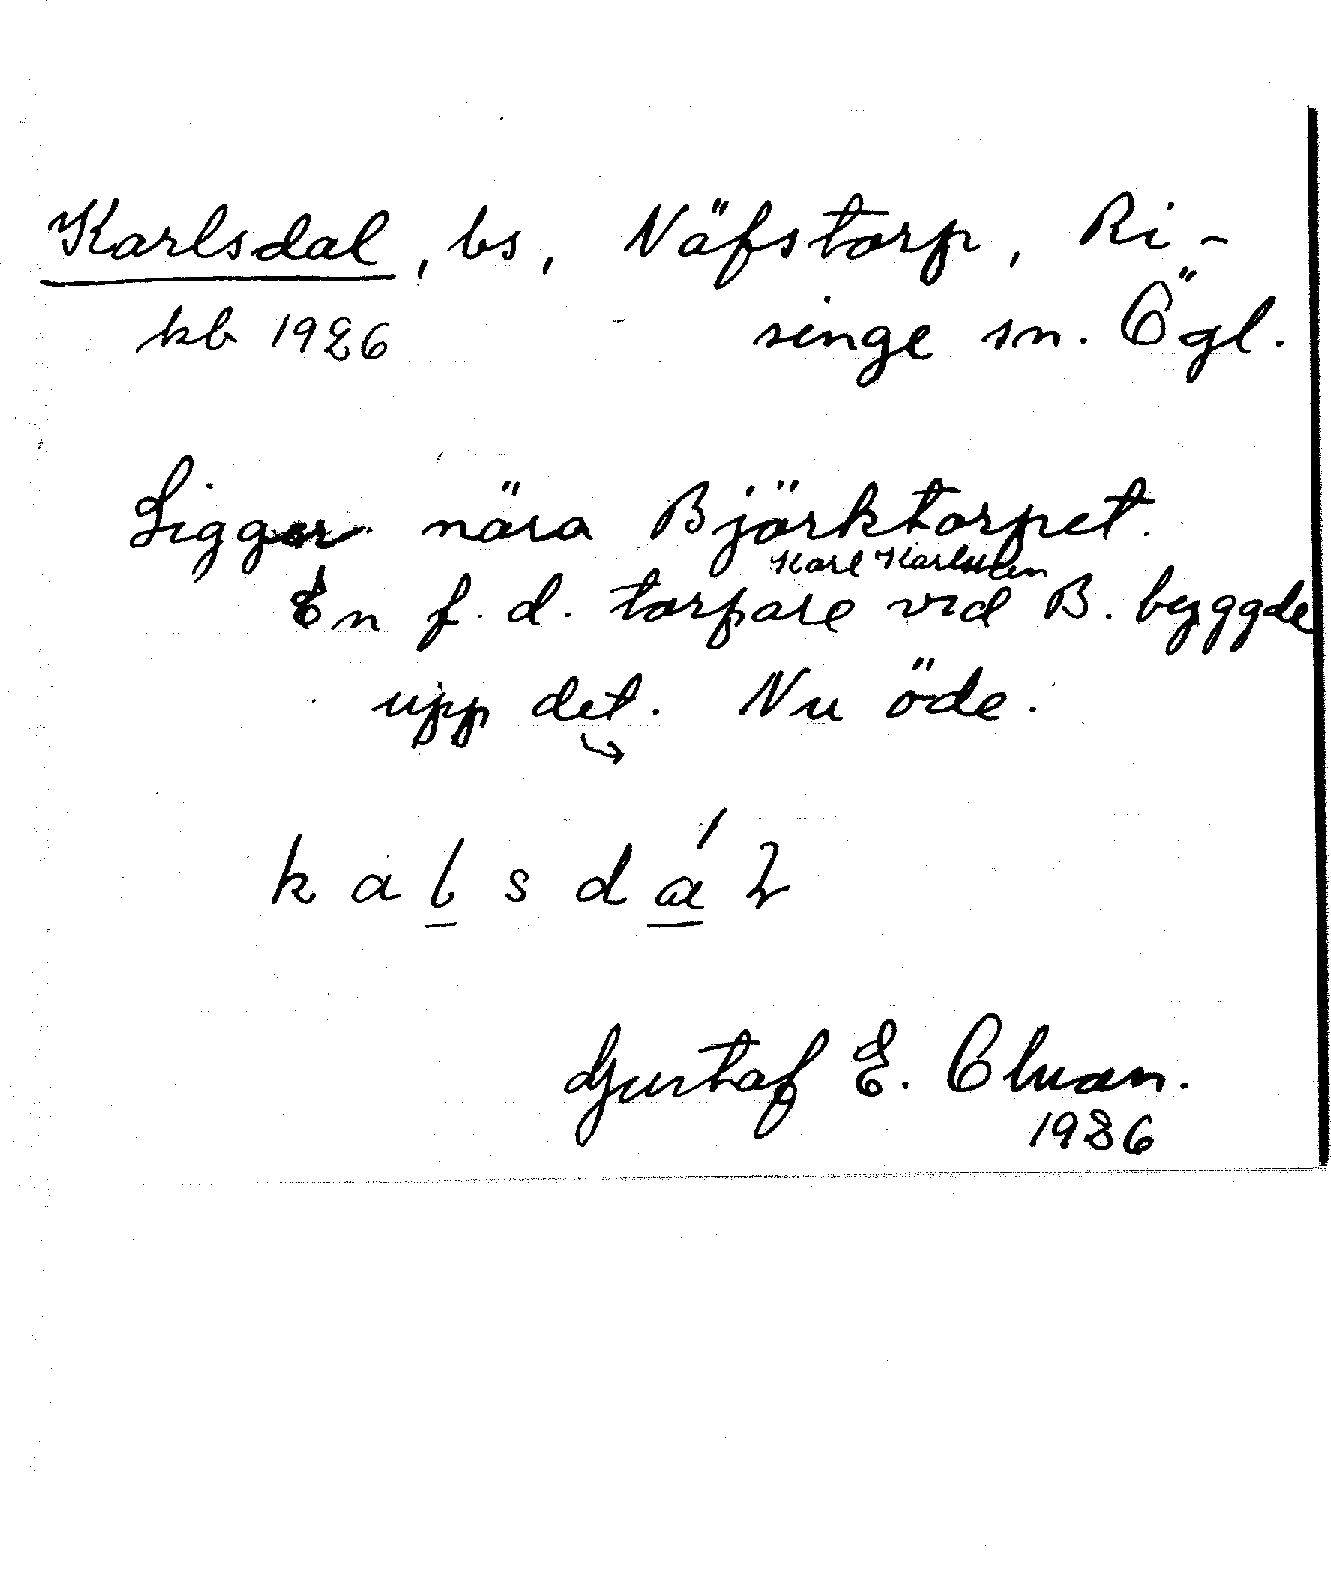 Karlsdal, bs, Näfstorp, Ri-
kb 1926 singe sn. Ögl.
Ligger nära Björktorpet.
Karl Karlsson
En f. d. torpare vid B. byggde
upp det. Nu öde.
k a l s d á
Gustaf E.
1926